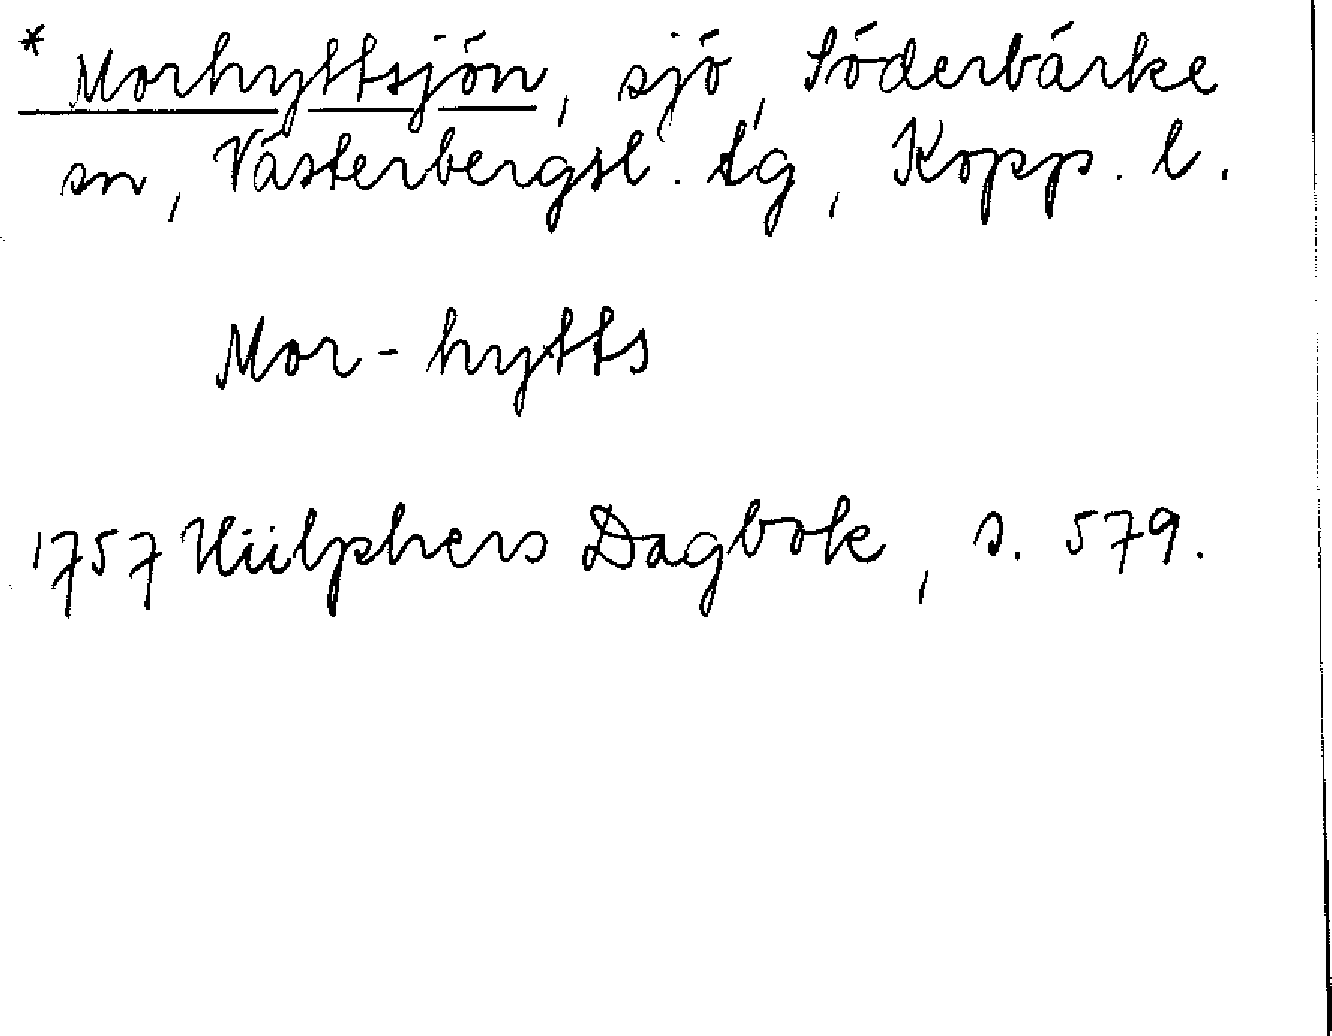 * Morhyttsjön, sjö, Söderbärke
sn, Västerbergsl. tg, Kopp. l.
Mor-hytts
1757 Hülphers Dagbok, s. 579.